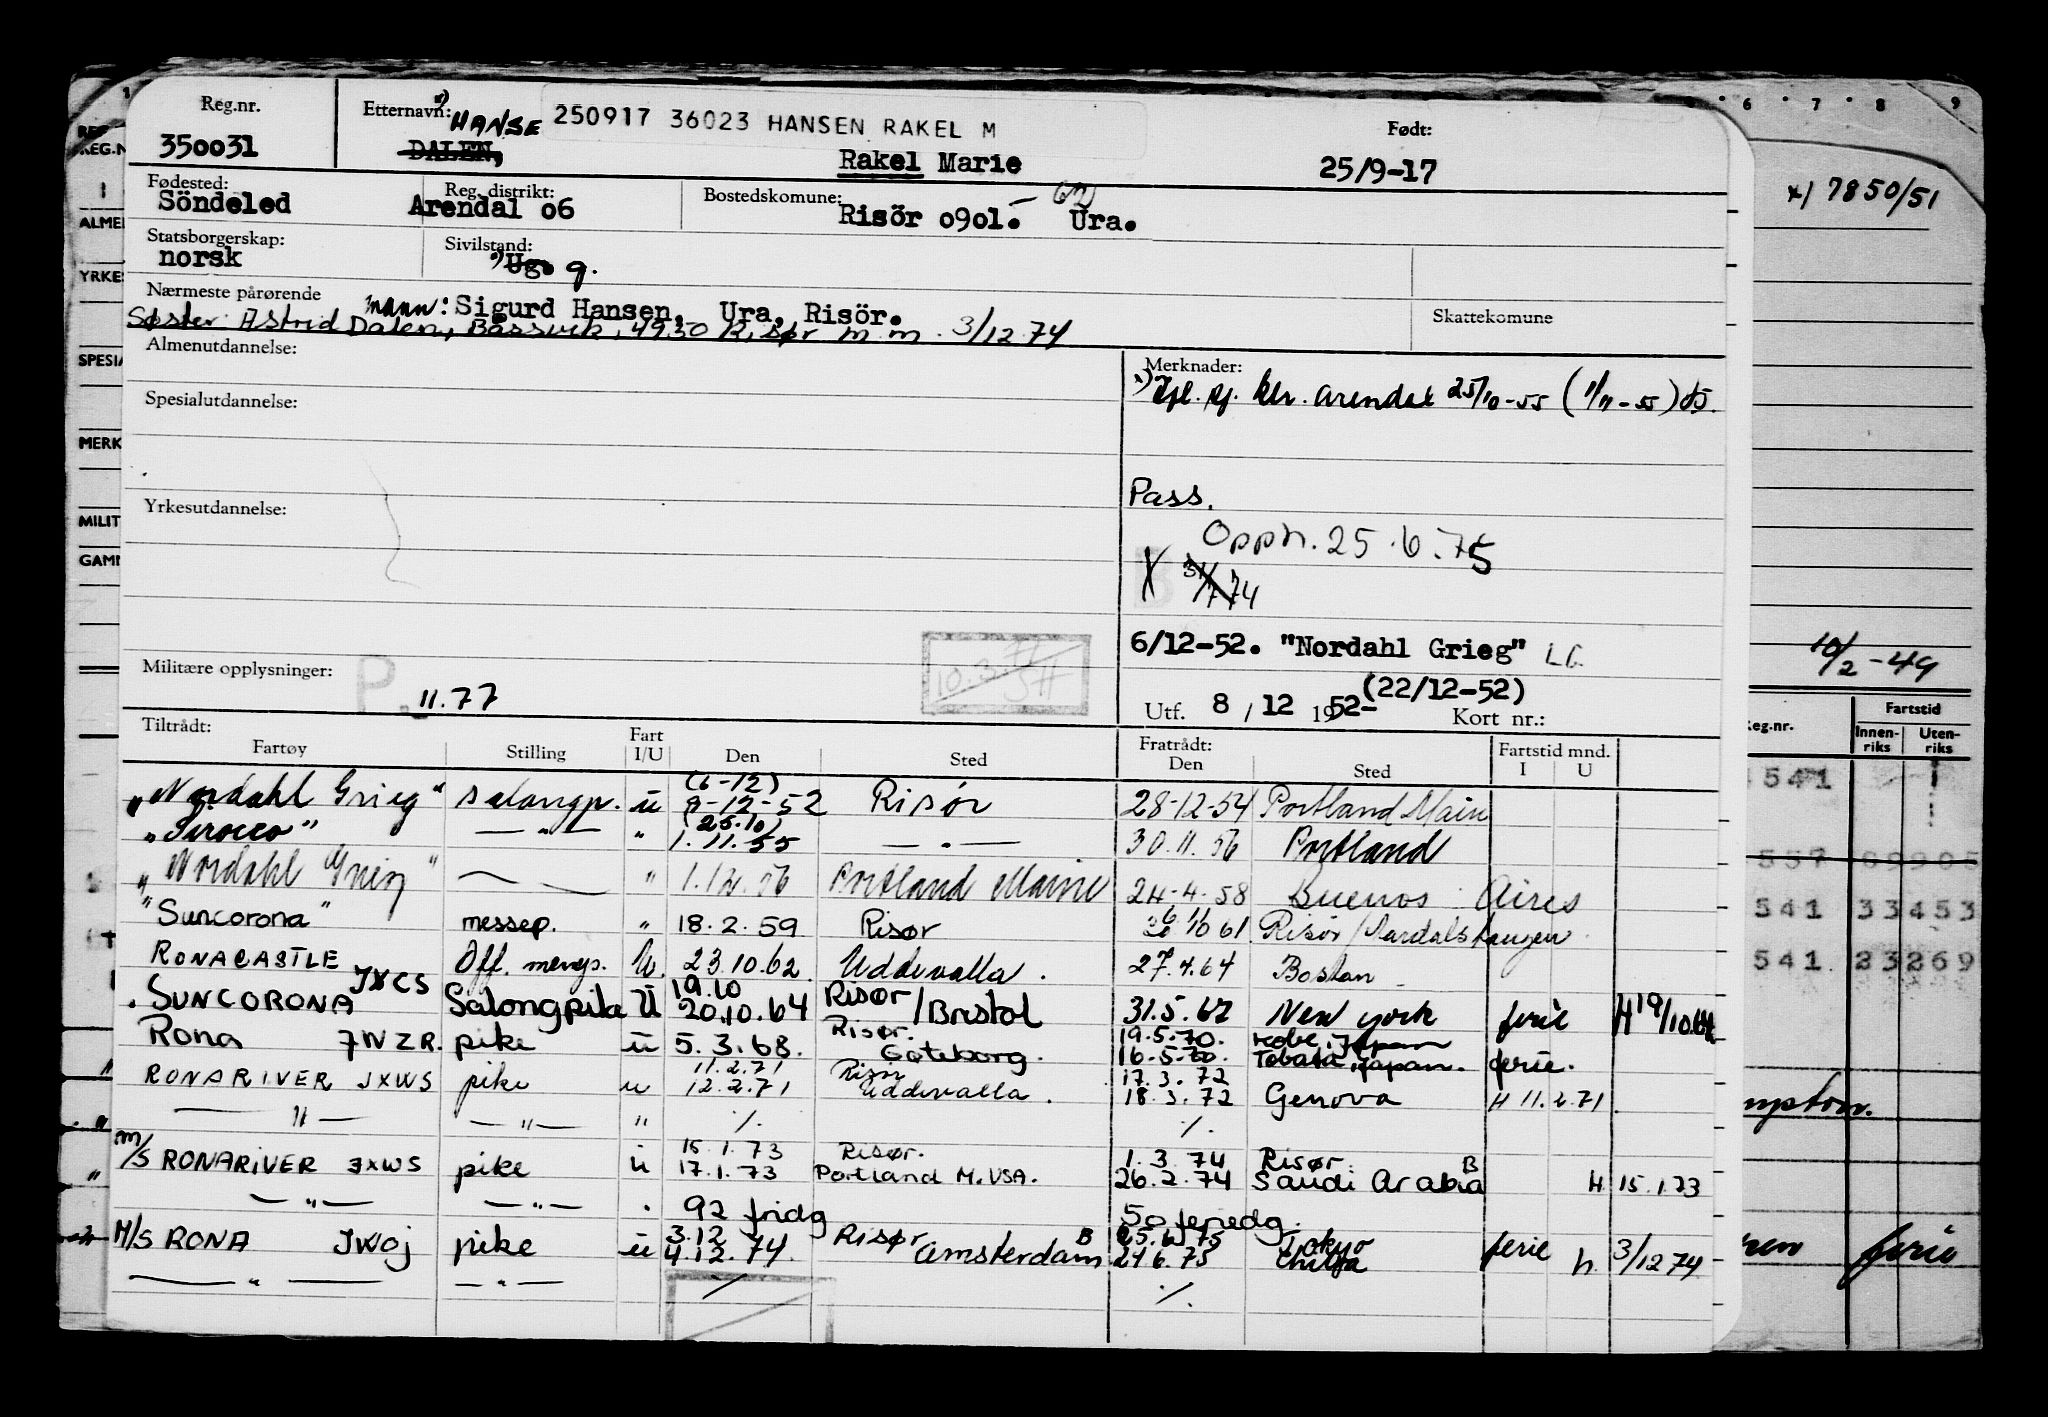 Reg.nr. Etternavn: x) HANSE 250917 36023 HANSEN RAKEL M Født: 6 7 8 9
350031 DALEN, Rakel Marie 25/9-17
Fødested: Reg. distrikt: Bostedskomune: x) 7850/51
Söndeled Arendal o6 Risör o9o1. Ura.
Statsborgerskap: Sivilstand:
norsk x) Ug. g.
Nærmeste pårørende mann: Sigurd Hansen, Ura, Risör. Skattekomune
Søster: Astrid Dalen, Båssvik, 4950 Risør m.m. 3/12.74
Almenutdannelse: Merknader:
Kbr. Arendal 25/10-55 (1/11-55)
Spesialutdannelse:
Pass.
Yrkesutdannelse:
Opph. 25.6.75
X 31/7 74
6/12-52. "Nordahl Grieg" LG
10/2-49
Militære opplysninger: P. 11.77
(22/12-52)
Utf. 8 / 12 1952- Kort nr.:
Tiltrådt: Fratrådt: Fartstid mnd.
Fartøy Stilling Fart I/U Den Sted Den Sted I U
eg.nr. Fartstid Innen-riks Uten-riks
"Nordahl Grieg" salongp. u (6-12) 9-12-52 Risør 28-12-54 Portland Main
541
"Sirocco" — " — " (25.10) 1.11.55 — " — 30.11.56 Portland
"Nordahl Grieg" — " — " 1.12.56 Portland Maine 24-4-58 Buenos Aires
"Suncorona" messep. " 18.2.59 Risør 61 Risør/Sardalstangen
541 33453
RONACASTLE Off. messp. U. 23.10.62 Uddevalla. 27.4.64 Boston
541 23269
SUNCORONA JXCS Salongpike U 19.10 20.10.64 Risør/Bristol 31.5.67 New York ferie H 19/10.64
Rona JWZR. pike u 5.3.68. Risør. Göteborg. 19.5.70. Kobe, Japan
16.5.70. Tobata, Japan. ferie.
RONARIVER JXWS pike u 11.2.71 12.2.71 Risør Uddevalla. 17.3.72 18.3.72 Genova H 11.2.71.
— " — — " — " ./. ./.
m/s RONARIVER JXWS pike u 15.1.73 17.1.73 Risør. Portland M. USA. 1.3.74 26.2.74 Risør. Saudi Arabia B H 15.1.73
— " — — " — " 92 fridg 50 feriedg.
M/S RONA JWOJ pike u 3.12 4.12.74. Risør Amsterdam B 25.6.75 24.6.75 Tokyo Chiba ferie h. 3/12 74
ferie
— " — — " — ./. ./.